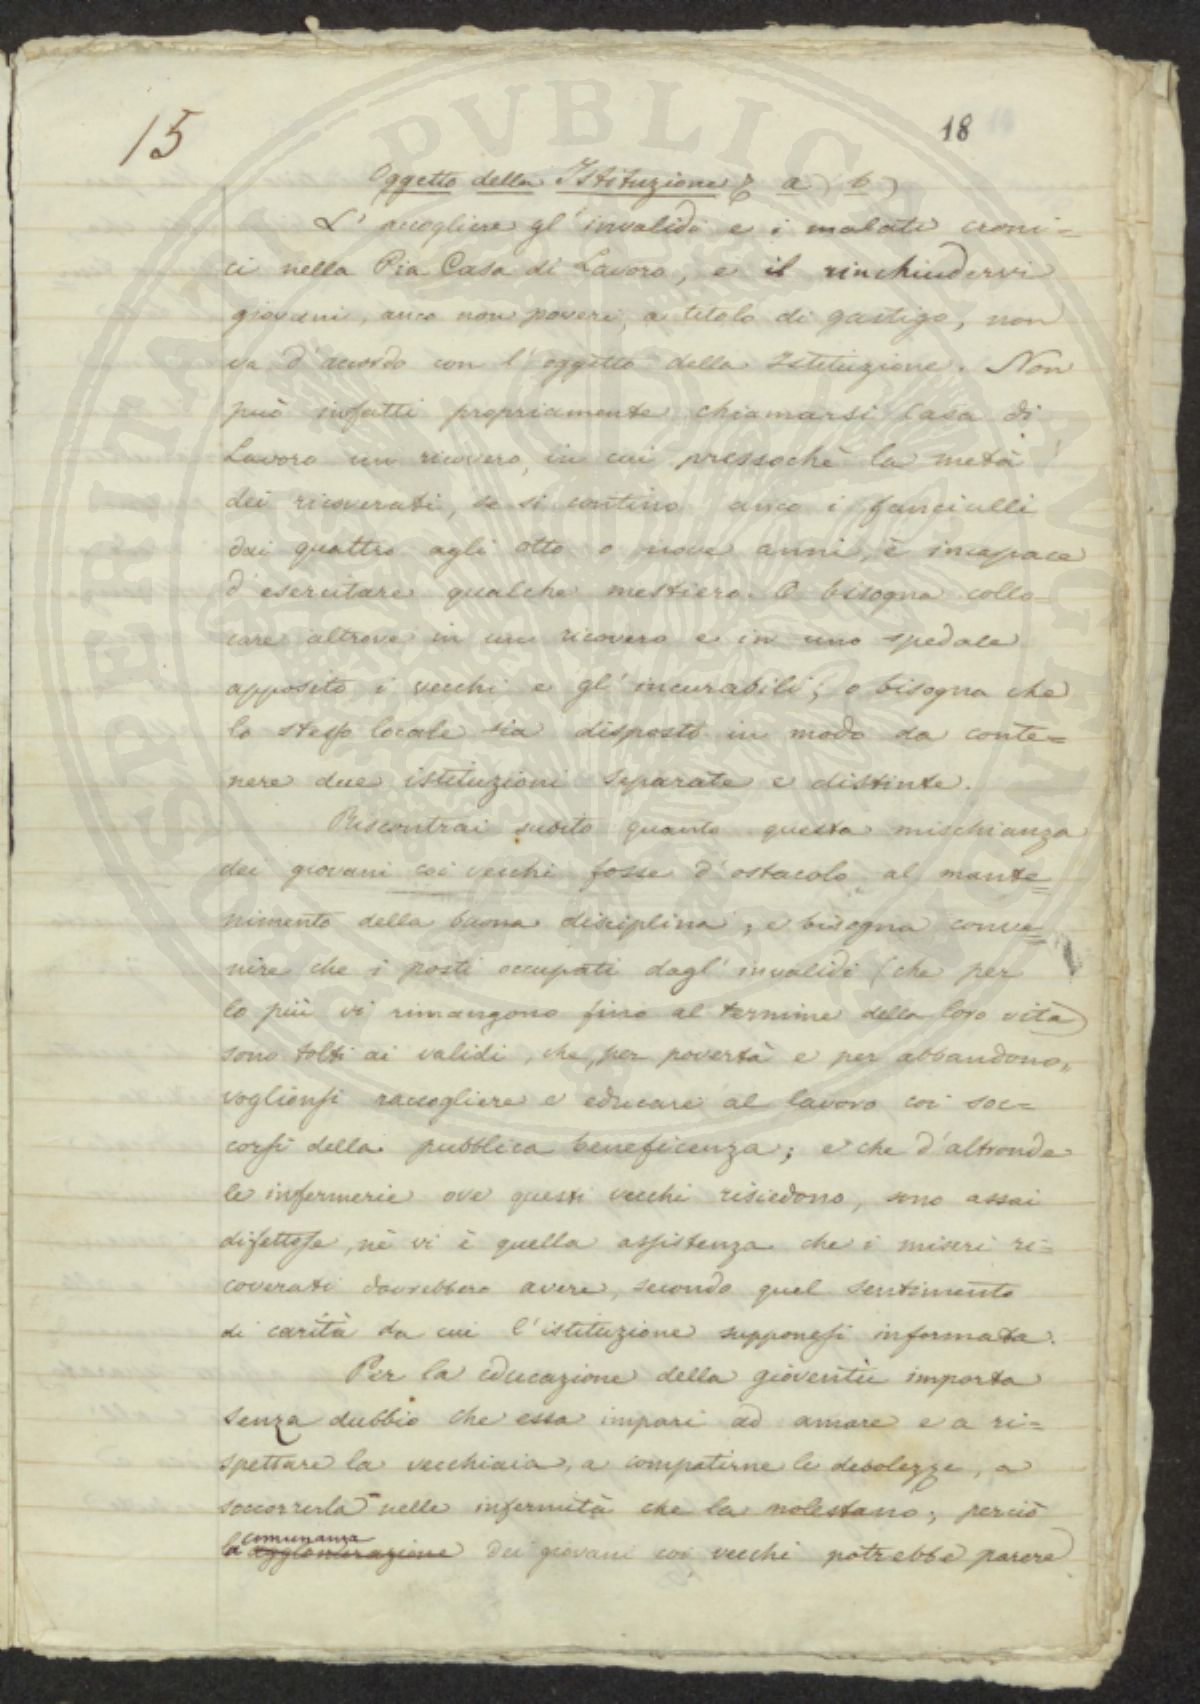 15
18
Oggetto della Istituzione a) b)
L'accogliere gl'invalidi e i malati croni=
ci nella Pia Casa di Lavoro, e il rinchiudervi
giovani, anco non poveri, a titolo di gastigo, non
va d'accordo con l'oggetto della Istituzione. Non
può infatti propriamente chiamarsi Casa di
Lavoro un ricovero, in cui pressochè la metà
dei ricoverati, se si contino anco i fanciulli
dai quattro agli otto o nove anni, è incapace
d'esercitare qualche mestiero. O bisogna collo=
care altrove in un ricovero e in uno spedale
apposito i vecchi e gl'incurabili; o bisogna che
lo stesso locale sia disposto in modo da conte=
nere due istituzioni separate e distinte.
Riscontrai subito quanto questa mischianza
dei giovani coi vecchi fosse d'ostacolo al mante=
nimento della buona disciplina; e bisogna conve=
nire che i posti occupati dagl'invalidi (che per
lo più vi rimangono fino al termine della loro vita)
sono tolti ai validi, che, per povertà e per abbandono,
voglionsi raccogliere e educare al lavoro coi soc=
corsi della pubblica beneficenza; e che d'altronde
le infermerie ove questi vecchi risiedono, sono assai
difettose, nè vi è quella assistenza che i miseri ri=
coverati dovrebbero avere, secondo quel sentimento
di carità da cui l'istituzione supponesi informata.
Per la educazione della gioventù importa
senza dubbio che essa impari ad amare e a ri=
spettare la vecchiaia, a compatirne le debolezze, a
soccorrerla nelle infermità che la molestano; perciò
comunanza
la agglomerazione dei giovani coi vecchi potrebbe parere
SPERITATI PVBLICAE AVGENDAE